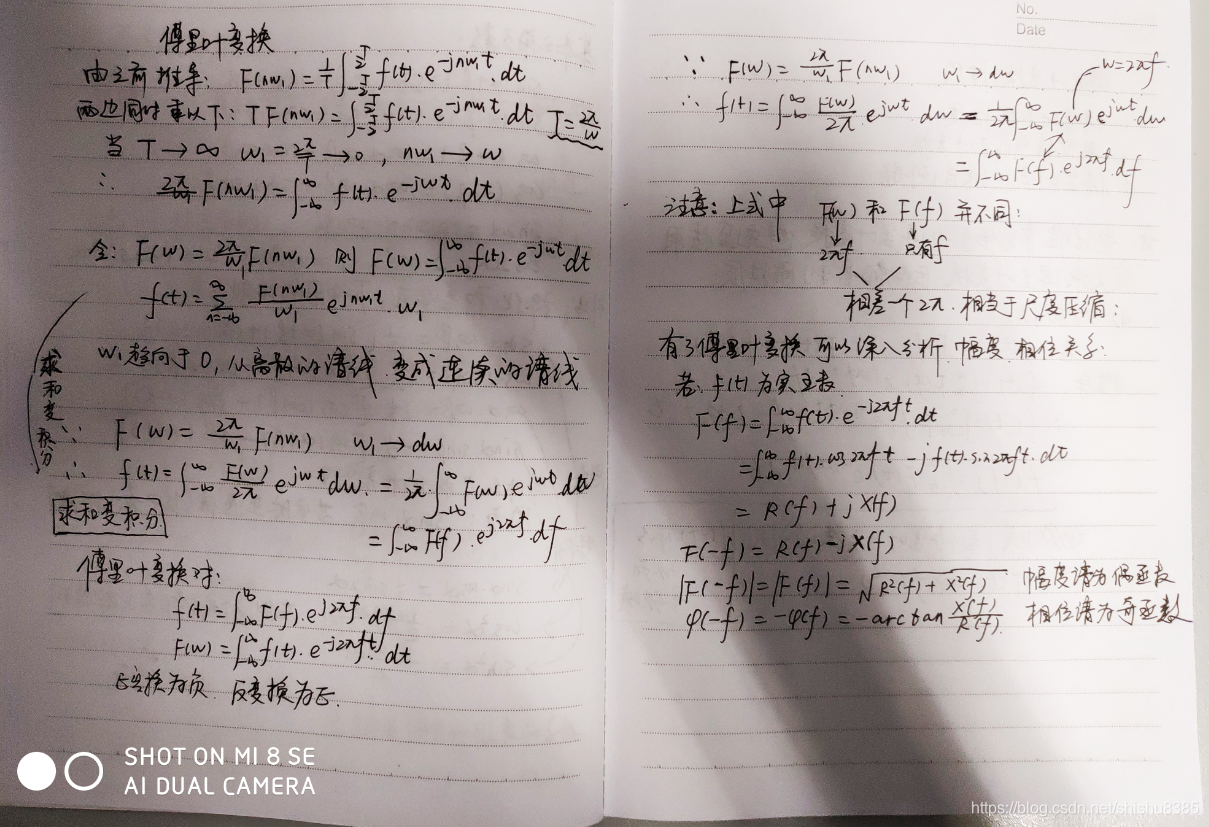 傅里叶变换
由之前推导: F(nw₁)=1/T∫_{-T/2}^{T/2} f(t)·e^{-jnw₁t}·dt
两边同时乘以T: TF(nw₁)=∫_{-T/2}^{T/2} f(t)·e^{-jnw₁t}·dt T=2π/w
当 T→∞ w₁=2π/T→0, nw₁→w
∴ 2π/w₁ F(nw₁)=∫_{-∞}^{∞} f(t)·e^{-jwt}·dt
令: F(w)=2π/w₁ F(nw₁) 则 F(w)=∫_{-∞}^{∞} f(t)·e^{-jwt}dt
f(t)=∑_{n=-∞}^{∞} F(nw₁)/w₁ e^{jnw₁t}·w₁
w₁趋向于0,从离散的谱线 变成连续的谱线
求和变积分
∵ F(w)=2π/w₁ F(nw₁) w₁→dw
∴ f(t)=∫_{-∞}^{∞} F(w)/2π e^{jwt}dw.=1/2π·∫_{-∞}^{∞} F(w)e^{jwt}dw
求和变积分
=∫_{-∞}^{∞} F(f)·e^{j2πf}·df
傅里叶变换对:
f(t)=∫_{-∞}^{∞} F(f)·e^{j2πf}·df
F(w)=∫_{-∞}^{∞} f(t)·e^{-j2πft}·dt
正变换为负 反变换为正.
No.
Date
∵ F(w)=2π/w₁ F(nw₁) w₁→dw w=2πf.
∴ f(t)=∫_{-∞}^{∞} F(w)/2π·e^{jwt} dw = 1/2π∫_{-∞}^{∞} F(w)e^{jwt}dw
=∫_{-∞}^{∞} F(f)·e^{j2πf}·df
注意:上式中 F(w) 和 F(f) 并不同:
2πf 只有f
相差一个2π.相当于尺度压缩:
有了傅里叶变换 可以深入分析 幅度 相位关系:
若 f(t)为实函数
F(f)=∫_{-∞}^{∞} f(t)·e^{-j2πft}·dt
=∫_{-∞}^{∞} f(t)·cos2πft -jf(t)·sin2πft·dt
= R(f)+jX(f)
F(-f)=R(f)-jX(f)
|F(-f)|=|F(f)|=√(R²(f)+X²(f)) 幅度谱为偶函数
φ(-f)=-φ(f)=-arctan X(f)/R(f). 相位谱为奇函数
SHOT ON MI 8 SE
AI DUAL CAMERA
https://blog.csdn.net/shishu8385